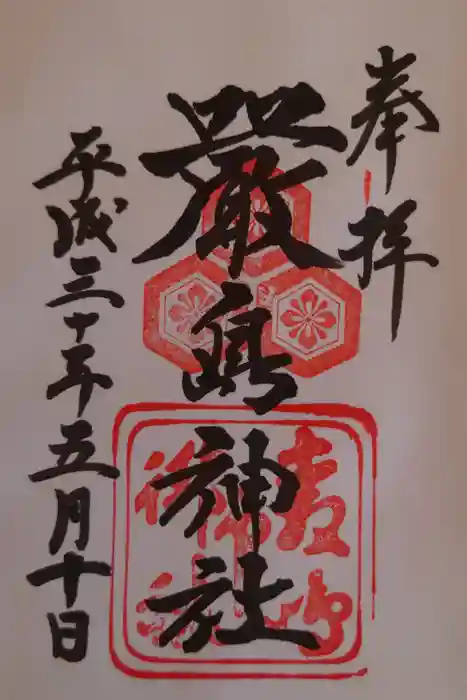 奉拝
嚴島神社
平成三十年五月十日